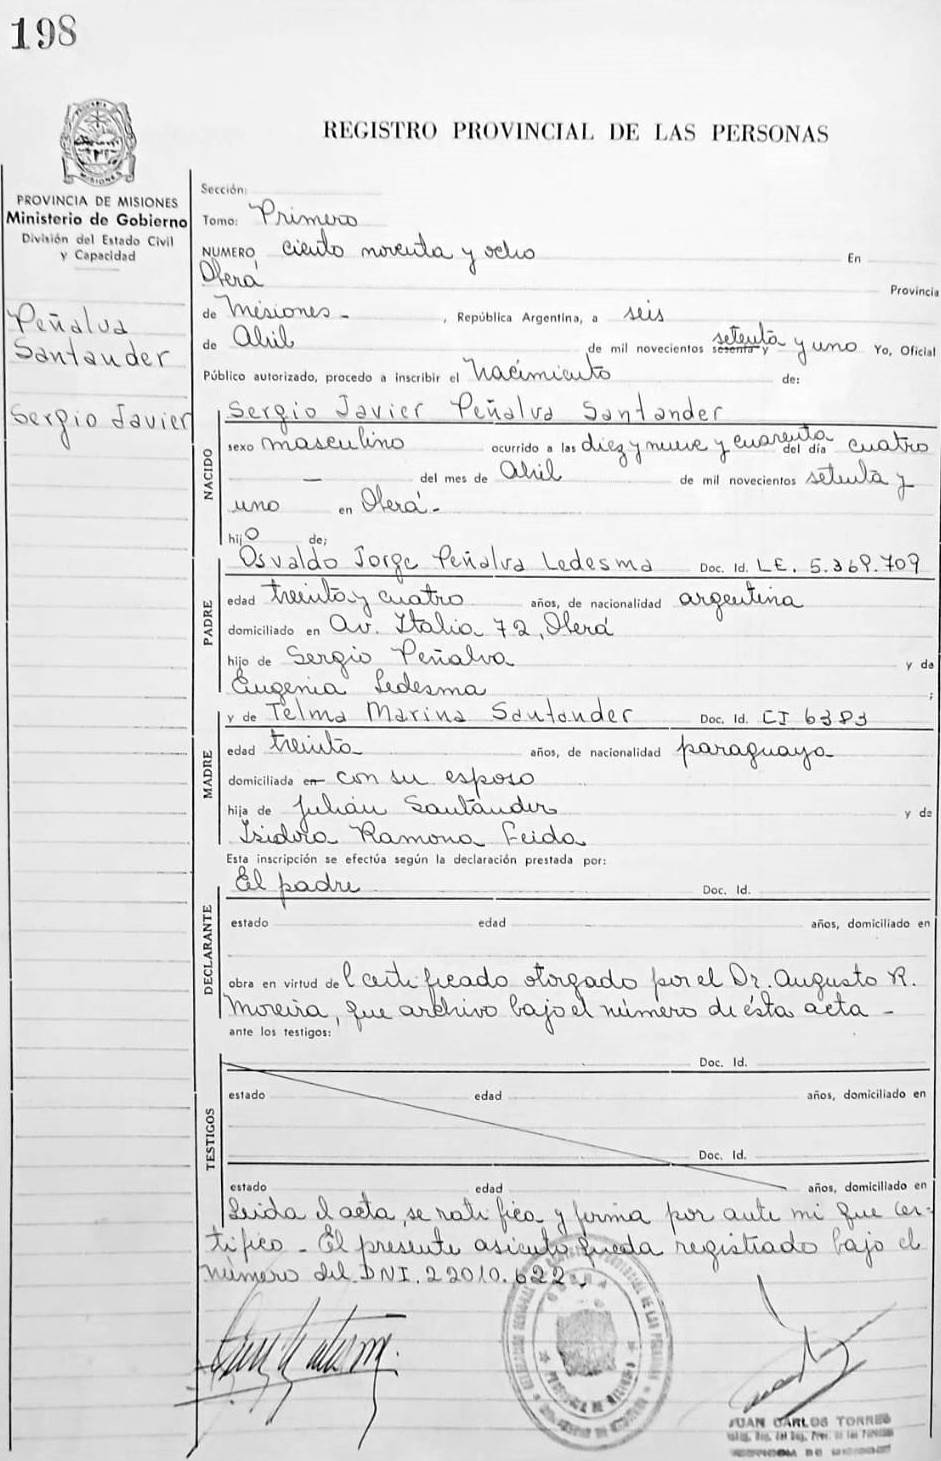 198
REGISTRO PROVINCIAL DE LAS PERSONAS
PROVINCIA DE MISIONES
Ministerio de Gobierno
División del Estado Civil
y Capacidad
Peñalva
Santander
Sergio Javier
Sección:
Tomo: Primero
NUMERO ciento noventa y ocho En
Oberá Provincia
de Misiones - , República Argentina, a seis
de Abril de mil novecientos sesenta y setenta y uno Yo, Oficial
Público autorizado, procedo a inscribir el Nacimiento de:
NACIDO
Sergio Javier Peñalva Santander
sexo masculino ocurrido a las diez y nueve y cuarenta del día cuatro
— del mes de Abril de mil novecientos setenta y
uno en Oberá -
hijo de;
PADRE
Osvaldo Jorge Peñalva Ledesma Doc. Id. LE. 5.369.709
edad treinta y cuatro años, de nacionalidad argentina
domiciliado en Av. Italia 72, Oberá
hijo de Sergio Peñalva y de
Eugenia Ledesma ;
MADRE
y de Telma Marina Santander Doc. Id. CI 6383
edad treinta años, de nacionalidad paraguaya
domiciliada en con su esposo
hija de Julián Santander y de
Isidora Ramona Feido
Esta inscripción se efectúa según la declaración prestada por:
DECLARANTE
El padre Doc. Id.
estado edad años, domiciliado en
obra en virtud de l certificado otorgado por el Dr. Augusto R.
Moreira, que archivo bajo el número de ésta acta -
ante los testigos:
TESTIGOS
Doc. Id.
estado edad años, domiciliado en
Doc. Id.
estado edad años, domiciliado en
Leida el acta, se ratifica y firma por ante mi que cer-
tifico - El presente asiento queda registrado bajo el
número del DNI. 22010.622,
JUAN CARLOS TORRES